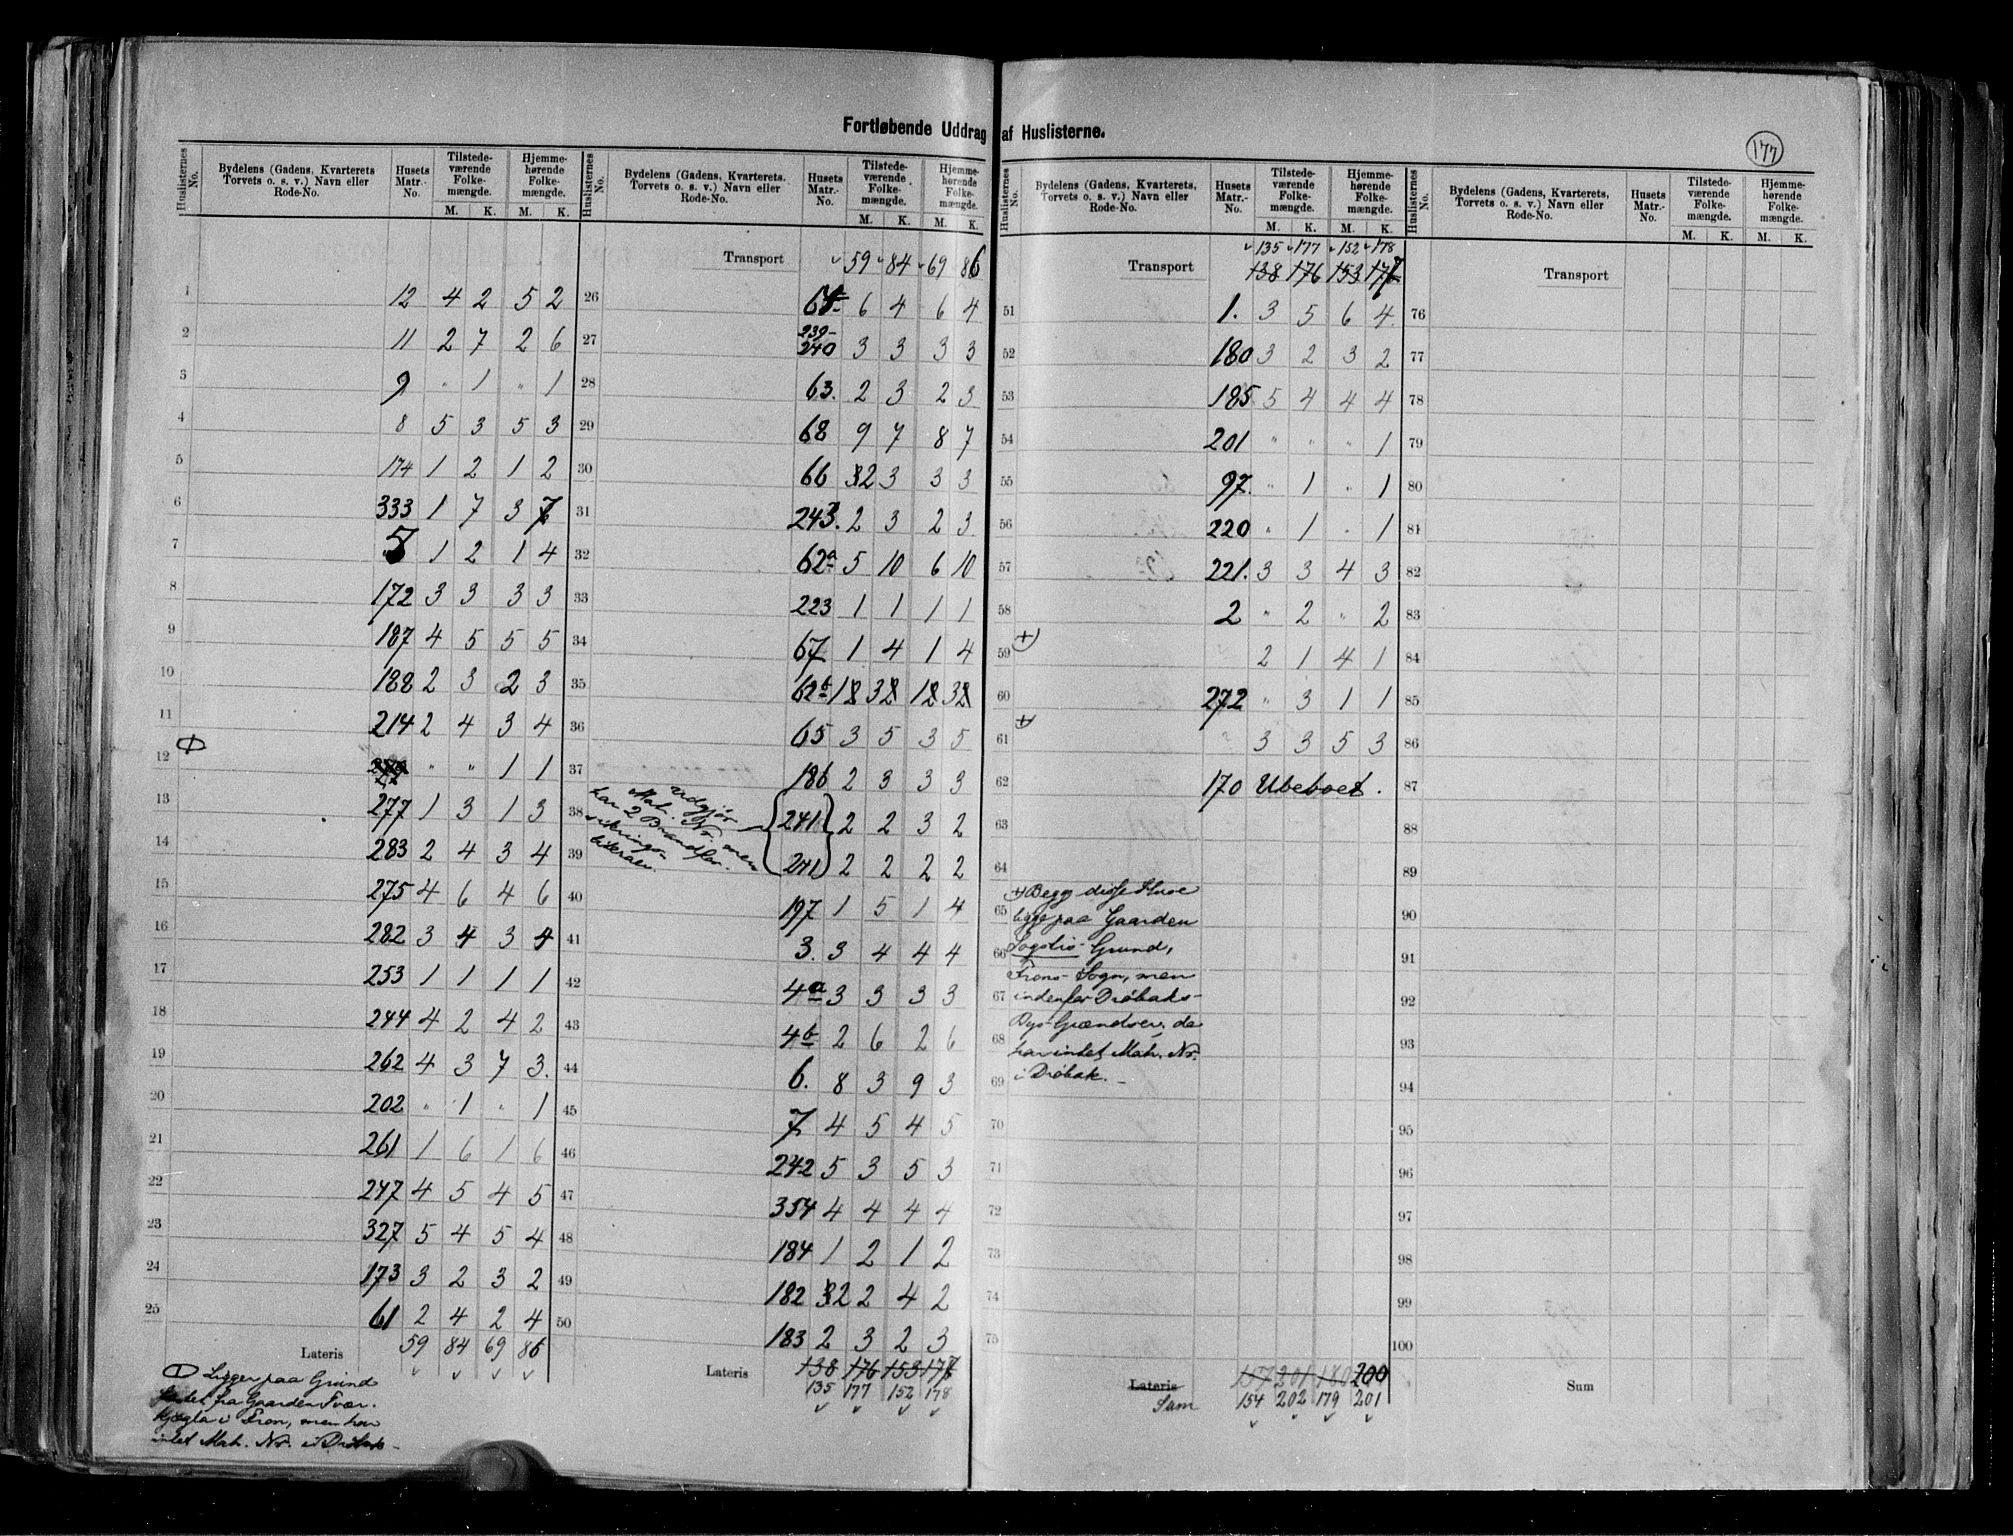 Fortløbende Uddrag af Huslisterne.
177
Huslisternes No. | Bydelens (Gadens, Kvarterets Torvets o. s. v.) Navn eller Rode-No. | Husets Matr.-No. | Tilstede-værende Folke-mængde. M. K. | Hjemme-hørende Folke-mængde. M. K.
1 12 4 2 5 2
2 11 2 7 2 6
3 9 " 1 " 1
4 8 5 3 5 3
5 174 1 2 1 2
6 333 1 7 3 7
7 5 1 2 1 4
8 172 3 3 3 3
9 187 4 5 5 5
10 188 2 3 2 3
11 214 2 4 3 4
12 " " 1 1
13 277 1 3 1 3
14 283 2 4 3 4
15 275 4 6 4 6
16 282 3 4 3 4
17 253 1 1 1 1
18 244 4 2 4 2
19 262 4 3 7 3.
20 202 " 1 " 1
21 261 1 6 1 6
22 247 4 5 4 5
23 327 5 4 5 4
24 173 3 2 3 2
25 61 2 4 2 4
Lateris 59 84 69 86
Ligger paa Grund
fra Gaarden
i Fron, men har
intet Mah. No. i Drøbak -
Huslisternes No. | Bydelens (Gadens, Kvarterets, Torvets o. s. v.) Navn eller Rode-No. | Husets Matr.-No. | Tilstede-værende Folke-mængde. M. K. | Hjemme-hørende Folke-mængde. M. K.
Transport 59 84 69 86
26 64 6 4 6 4
27 239-240 3 3 3 3
28 63. 2 3 2 3
29 68 9 7 8 7
30 66 2 3 3 3
31 243. 2 3 2 3
32 62a 5 10 6 10
33 223 1 1 1 1
34 67 1 4 1 4
35 62b 1 3 1 3
36 65 3 5 3 5
37 186 2 3 3 3
Udgjør
Mah. No. men
har 2 Brandfor-
sikrings-
literaer.
38 241 2 2 3 2
39 241 2 2 2 2
40 197 1 5 1 4
41 3. 3 4 4 4
42 4a 3 3 3 3
43 4b 2 6 2 6
44 6. 8 3 9 3
45 7 4 5 4 5
46 242 5 3 5 3
47 354 4 4 4 4
48 184 1 2 1 2
49 182 2 2 4 2
50 183 2 3 2 3
Lateris 138 176 153 177
135 177 152 178
Huslisternes No. | Bydelens (Gadens, Kvarterets, Torvets o. s. v.) Navn eller Rode-No. | Husets Matr.-No. | Tilstede-værende Folke-mængde. M. K. | Hjemme-hørende Folke-mængde. M. K.
135 177 152 178
Transport 138 176 153 177
51 1. 3 5 6 4
52 180 3 2 3 2
53 185 5 4 4 4
54 201 " " " 1
55 97. " 1 " 1
56 220 " 1 " 1
57 221. 3 3 4 3
58 2 " 2 " 2
59 +) 2 1 4 1
60 272 " 3 1 1
61 +) 3 3 5 3
62 170 Ubeboet.
63
64
65
66
67
68
69
+) Begge disse Huse
ligge paa Gaarden
Sogstis- Grund,
Frons- Sogn, men
indenfor Drøbaks-
Bys-Grændser, de
har intet Mah. No.
i Drøbak. -
70
71
72
73
74
75
Lateris 157 201 180 200
Sum 154 202 179 201
Huslisternes No. | Bydelens (Gadens, Kvarterets, Torvets o. s. v.) Navn eller Rode-No. | Husets Matr.-No. | Tilstede-værende Folke-mængde. M. K. | Hjemme-hørende Folke-mængde. M. K.
Transport
76
77
78
79
80
81
82
83
84
85
86
87
88
89
90
91
92
93
94
95
96
97
98
99
100
Sum